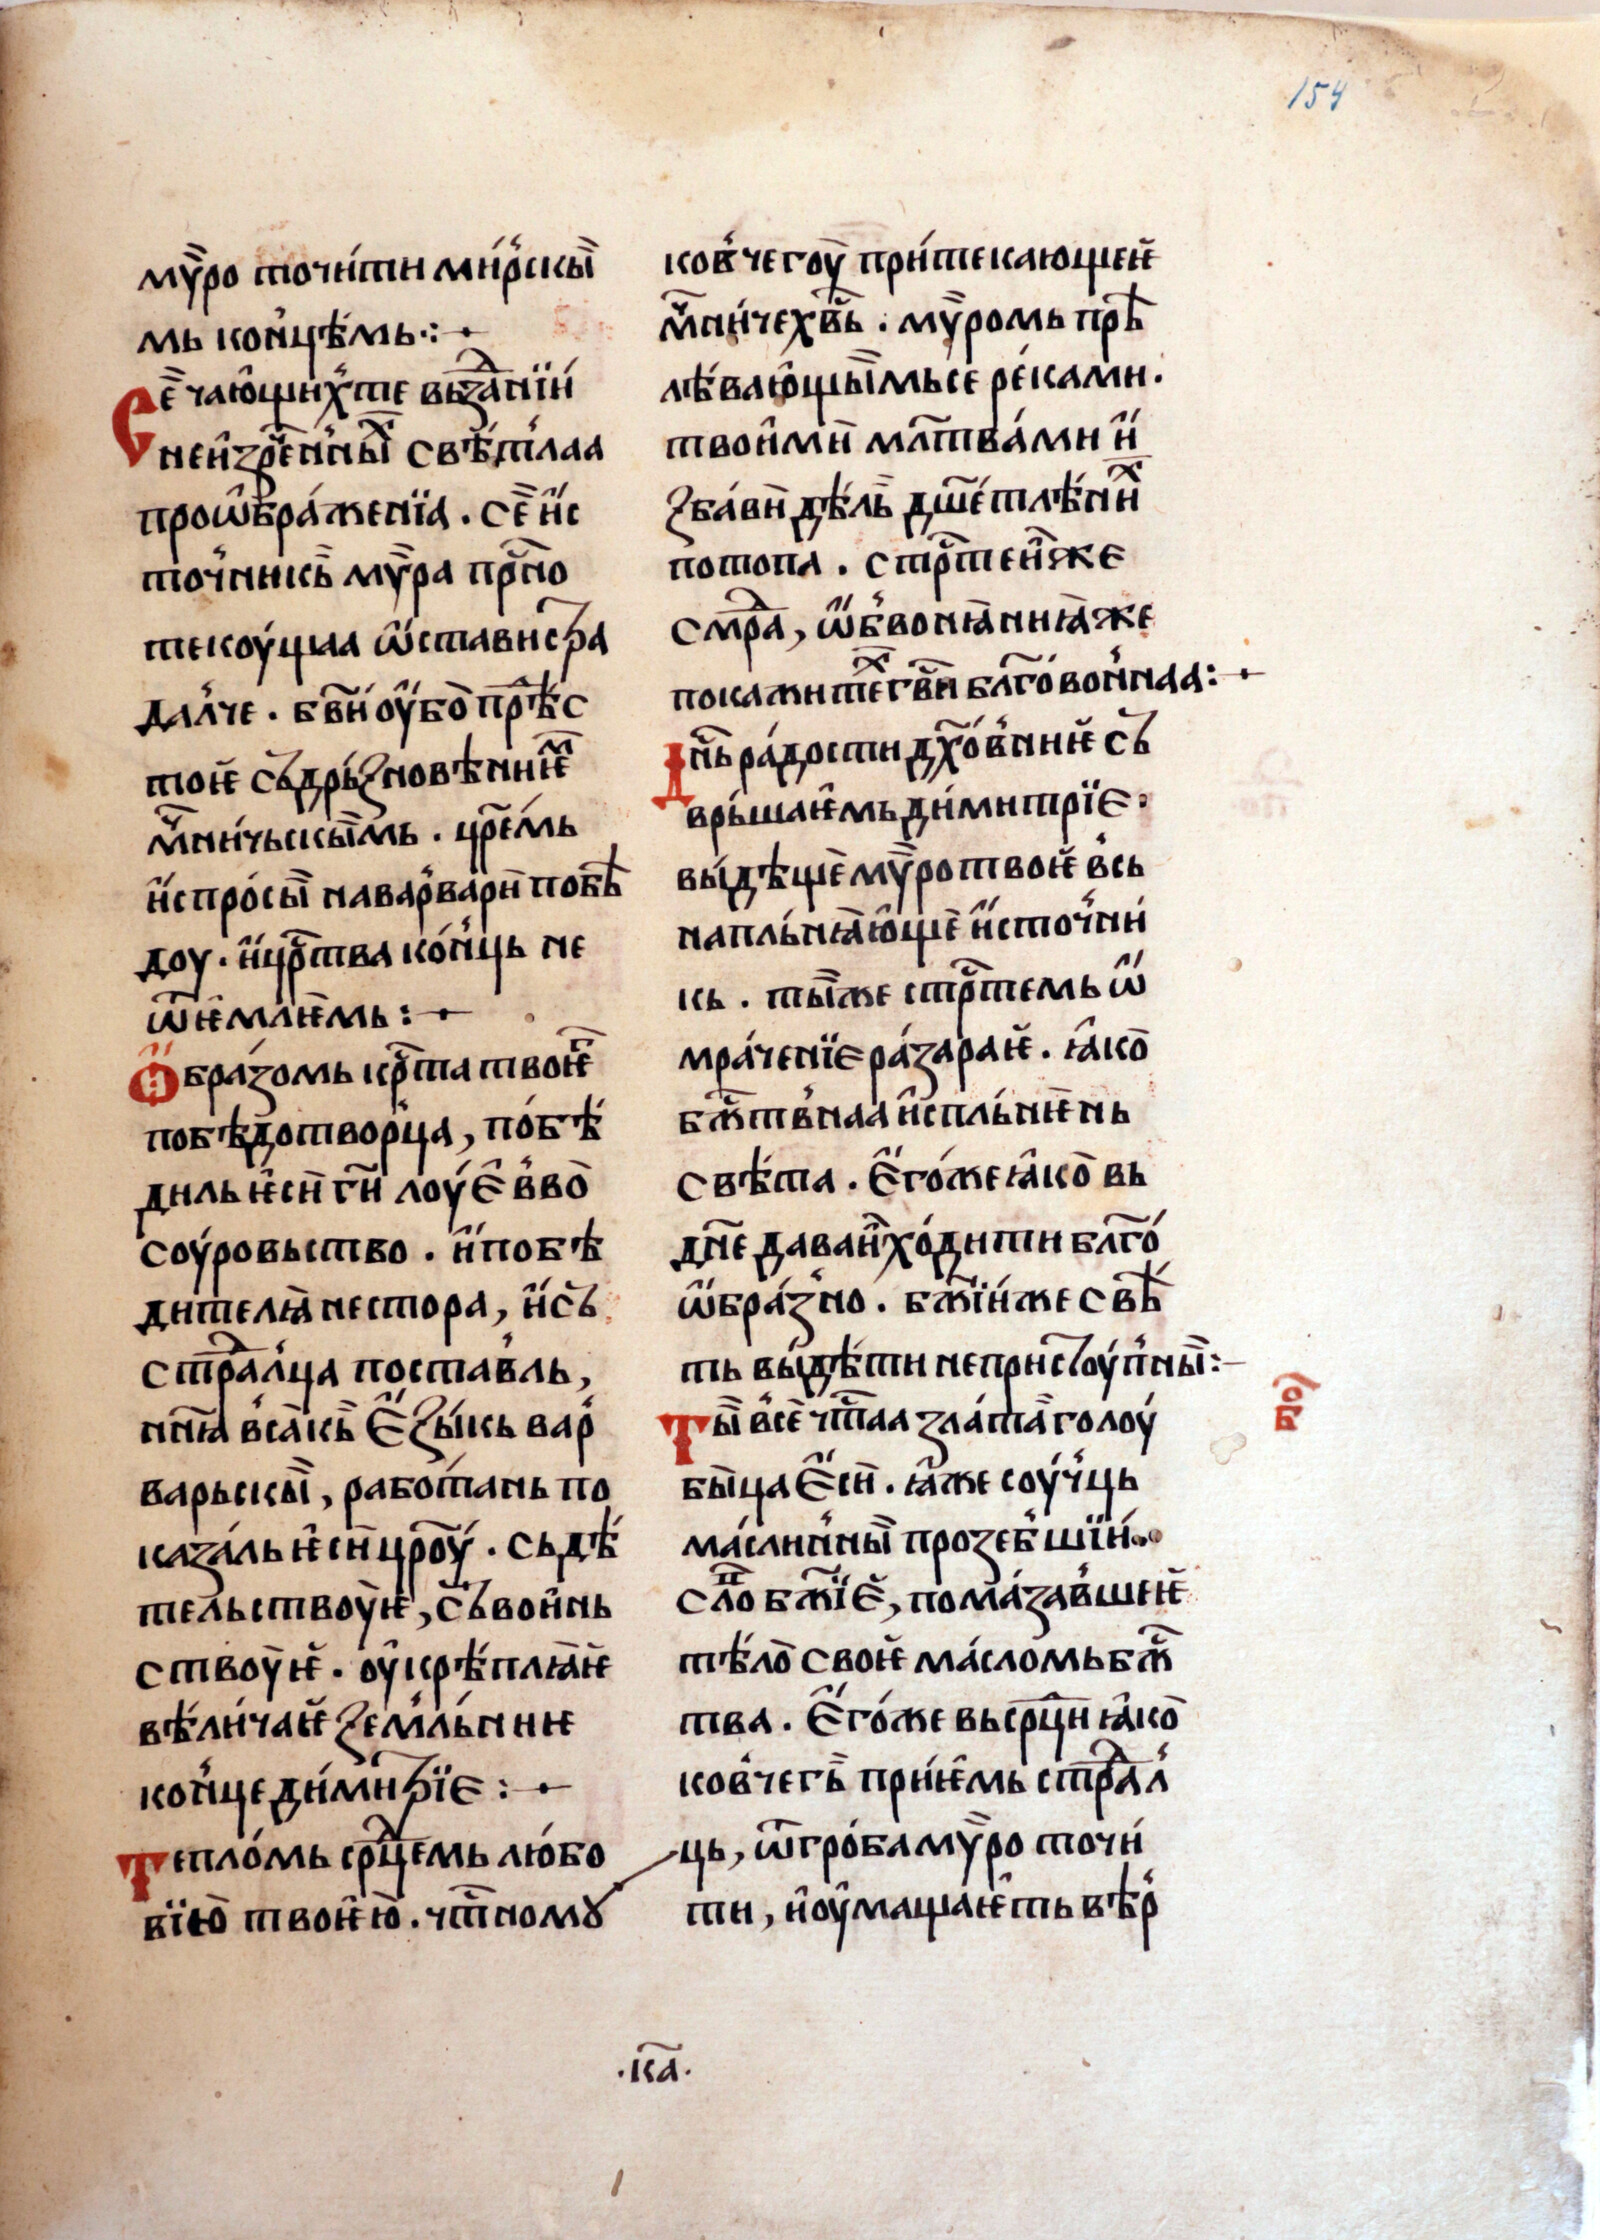 154
мѵ҆̀ро точи́ти ми́рскыи̑
мь кон҆цѣмь ·:
Се̑ чаю҆щих те в꙽зда̑нїи́
неи҆зре́ч҇ннын̾ х свѣ́т꙽лаа
проѡ҆бра́женїа . се̑ и҆с
точ҆никь̏ мѵ҆ра прⷭ҇но
текоу́щаа ѡ҆стави стра
дал҆че . бв҃и́ оу҆бо̀ прⷭ҇ѣ́с
тоѥ сьдрь́зновѣниѥⷨ
мч҃ни́чьскыи̑мь . цр҃е́мь
и҆спро́сы̏ на вар҆ва́ри побѣ̀
доу . и҆ црⷭ҇тва ко́н҆ць не
ѿѥ҆млѥмь :
Ѻбра́зомь крⷭ҇та твоѥⷢ҇
побѣ́дотвор҆ца , по́бѣ́
диль ѥ҆си гⷭ҇и лоу́е҆в҆во̀
соу́ровьство . и҆ побѣ
дителꙗ нестора , и҆ сь
страⷣл҆ца постав҆ль ,
нн҃ꙗ в҆са̑кь̏ е҆зы́кь вар҆
варьскы̏ , рабо́тань по
каза́ль ѥ҆си цр҃оу́ . сьдѣ́
тельствоу̀ѥ , сьвои҆нь
ствоу̀ѥ . оу҆крѣ́плꙗѥ
вѣли́чаѥ земль́ниѥ
кон҆це ди́митрїе :
Тепло́мь срⷣцемь лю́бо
вїю̀ твоѥ҆ю̀ . чтⷭ҇номꙋ
ков҆чегоу̀ при́текающеѥ
мч҃ни́че хв҃ь . мѵ҆ромь прѣ̀
лѣ́ваю҆щы̑мьсе ре́ками .
твои҆ми мл҃тва́ми и҆
зба́ви дѣль̀ дш҃етлѣ́ни̏ⷯ
потопа . стрⷭ҇теи̏ же
смраⷣ , ѡ҆б҆вонꙗниꙗ же
покажи теⷯ гв҃и бл҃гово́н҆наа :
Дн҃ь ра́дости дх҃о́в҆ниѥ сь
врь́шаѥмь ди́митрїе :
вы́дѣще̏ мѵ҆ро твоѥ в҆сь
напль́нꙗю҆ще̏ и҆сточ҆ни́
кь . ты̑же стрⷭ҇темь ѡ҆
мра́ченїе ра́зараѥ . ꙗ҆ко̀
бжⷭ҇тв҆наа и҆спль́нѥнь
свѣ́та . е҆го́же ꙗ҆ко̀ вь
дн҃е даваи̏ ходити бл҃го́
ѡ҆бра́з҆но . бж҃їи́же свѣ́
ть вы́дѣти непристоу́п҆ны̏ :
Ты̑ в҆се̏чтⷭ҇аа зла́та̏ голоу́
бы̏ца е҆си . ꙗ҆же соу́ч҆ць
ма́слич҆ны̏ прозеб҆шїи́
соб
слоⷡ бж҃їе̏ , пома́зав҆шеѥ
тѣ́ло̀ своѥ ма́сломь бжⷭ҇
тва . е҆го́же вь срⷣци ꙗ҆ко̀
ков҆чегь̏ при́ѥмь страⷣл҆
ць , ѿ гро́ба мѵ҆ро точи́
ти , и҆ оу҆маща́ѥ҆ть вѣр҆
· к҃а ·